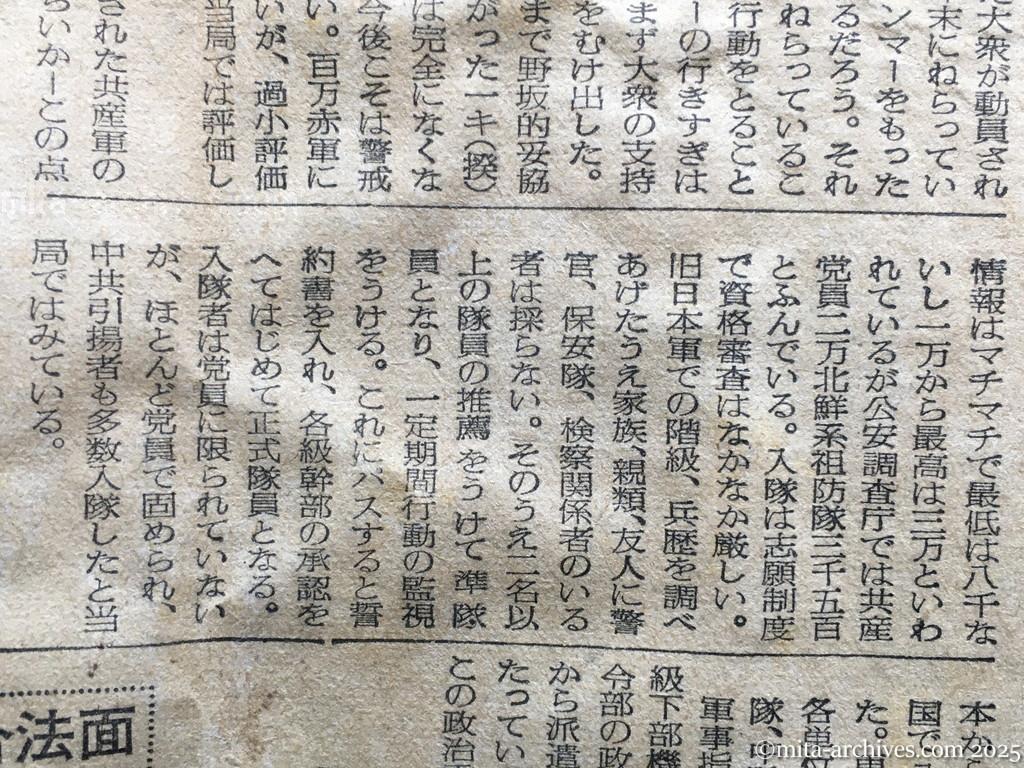 た大衆が動員され
末にねらってい
ンマーをもった
るだろう。それ
ねらっているこ
行動をとること
ーの行きすぎは
まず大衆の支持
をむけ出した。
まで野坂的妥協
がった一キ(揆)
は完全になくな
今後こそは警戒
い。百万赤軍に
いが、過小評価
当局では評価し
された共産軍の
らいかーこの点
情報はマチマチで最低は八千な
いし一万から最高は三万といわ
れているが公安調査庁では共産
党員二万北鮮系祖防隊三千五百
とふんでいる。入隊は志願制度
で資格審査はなかなか厳しい。
旧日本軍での階級、兵歴を調べ
あげたうえ家族、親類、友人に警
官、保安隊、検察関係者のいる
者は採らない。そのうえ二名以
上の隊員の推薦をうけて準隊
員となり、一定期間行動の監視
をうける。これにパスすると誓
約書を入れ、各級幹部の承認を
へてはじめて正式隊員となる。
入隊者は党員に限られていない
が、ほとんど党員で固められ、
中共引揚者も多数入隊したと当
局ではみている。
本か
国で
た。
各単
隊、
軍事指
級下部機
令部の政
から派遣
たってい
この政治
法面
©mita-archives.com 2025